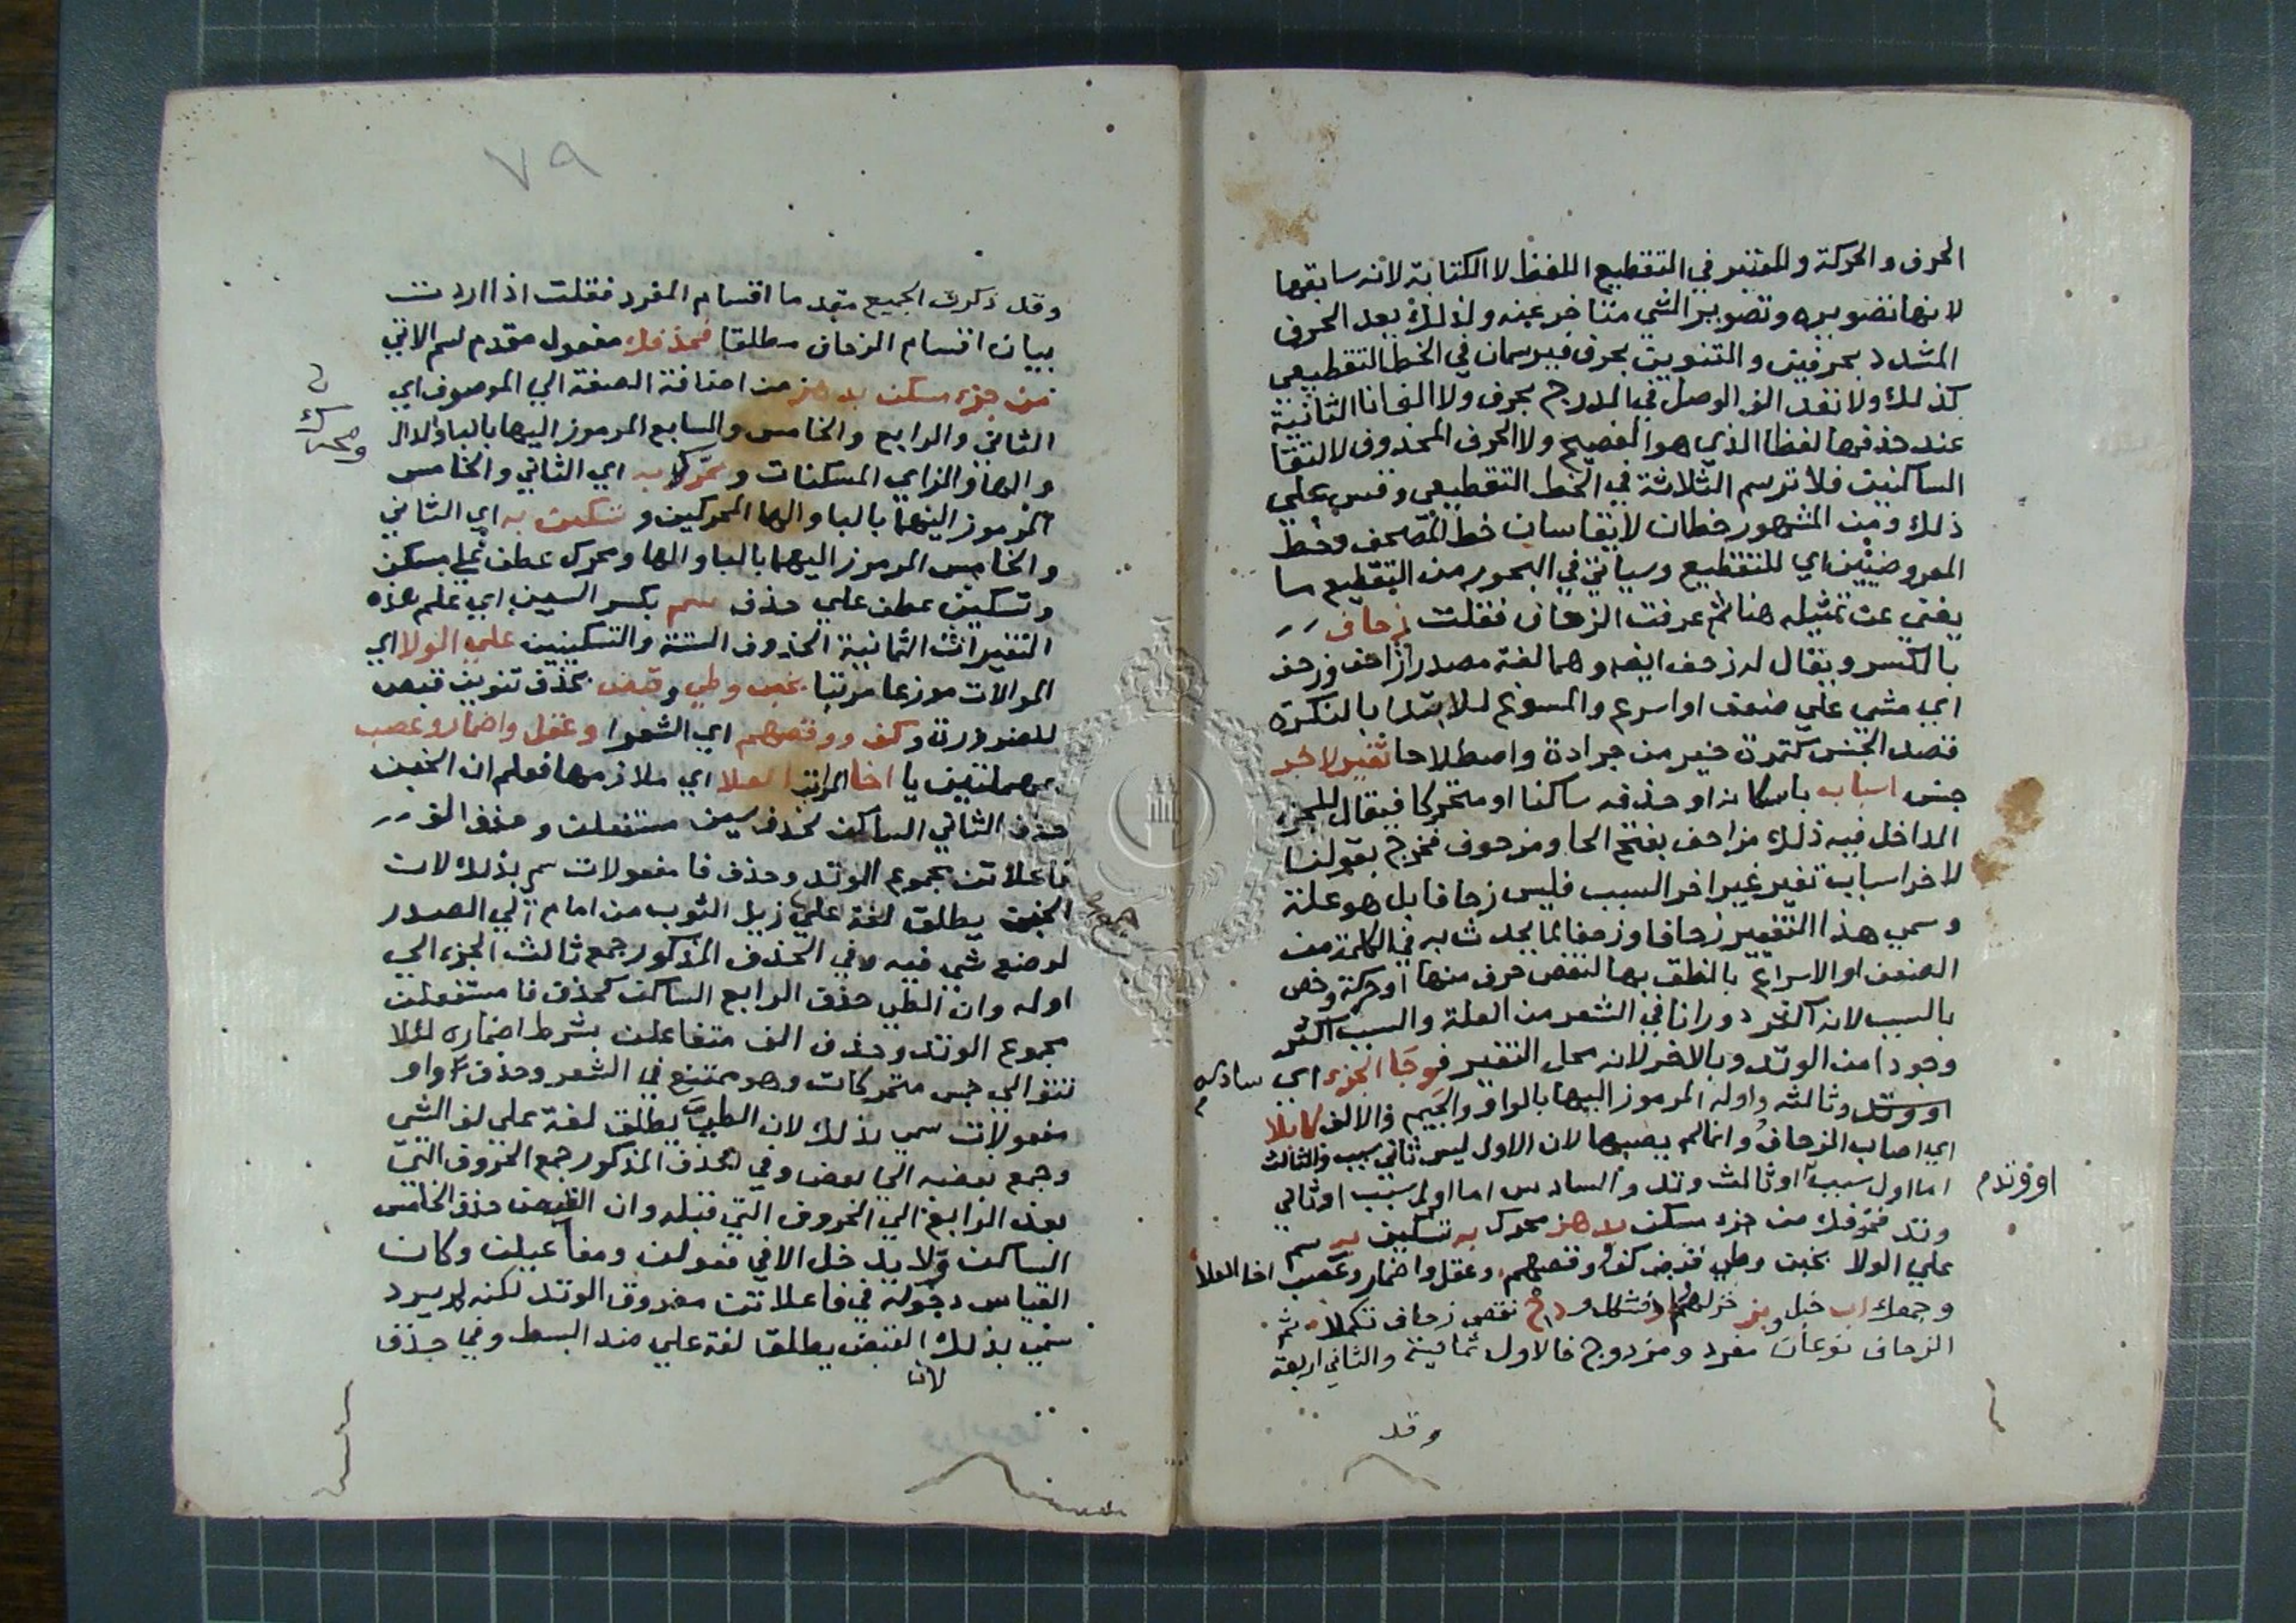 الحرف والحركة والمعتبر في التقطيع اللفظ لا الكتابة لانه سابقها
لانها تصويره وتصوير الشي متاخر عنه ولذلك يعد الحرف
المشدد بحرفين والتنوين بحرف فيرسمان في الخط التقطيعي
كذلك ولا تعد الف الوصل في المدرج بحرف ولا الف انا الثانية
عند حذفها لفظا الذي هو الفصيح ولا الحرف المحذوف لالتقا
الساكنين فلا ترسم الثلاثة في الخط التقطيعي وقس علي
ذلك ومن المشهور خطان لا يقاسان خط المصحف وخط
العروضيين اي للتقطيع وسياتي في البحور من التقطيع ما
يغني عن تمثيله هنا ثم عرفت الزحاف فقلت زحاف
بالكسر ويقال له زحف ايضا وهما لغة مصدر ازاحف وزحف
اي مشي علي ضعف او اسرع والمسوغ للابتدا بالنكرة
قصد الجنس كتمرة خير من جرادة واصطلاحا تغير لاخر
جنس اسبابه باسكان او حذفه ساكنا او متحركا فيقال للجزء
الداخل فيه ذلك مزاحف بفتح الحا ومزحوف فخرج بقولنا
لاخر اسباب تغير غير اخر السبب فليس زحافا بل هو علة
وسمي هذا التغيير زحافا وزحفا لما يحدث به في الكلمة من
الضعف او الاسراع بالنطق بها لنقص حرف منها او حركة وخص
بالسبب لانه اكثر دورانا في الشعر من العلة والسبب اكثر
وجودا من الوتد وبالاخر لانه محل التغير فوجا الجزء اي سادسه
او وتد وثالثه واوله المرموز اليها بالواو والجيم والالف كاملا
اي اصاب الزحاف وانما لم يصبها لان الاول ليس ثاني سبب والثالث
اما اول سبب او ثالث وتد والسادس اما اول سبب او ثاني
اووتدم
وتد فحذفك من جزء مسكن بدهز محرك به تسكين به سم
علي الولا بخبن وطي قبض كف وقصهم وعقل واضمار وعصب اخا العلا
وجمعك اب خبل وبز خزلهم وشكل و نقص زحاف تكملا ثم
الزحاف نوعان مفرد ومزدوج فالاول ثمانية والثاني اربعة
وقد
٧٩
وقد ذكرت الجميع مقدما اقسام المفرد فقلت اذا اردت
بيان اقسام الزحاف مطلقا فحذفك مفعول مقدم لسم الاتي
من جزء مسكن بدهز من اضافة الصفة الي الموصوف اي
الثاني والرابع والخامس والسابع المرموز اليها بالبا والدال
والها والزاي المسكنات ومحركا به اي الثاني والخامس
ومحرك
المرموز اليهما بالبا والها المحركين وتسكين به اي الثاني
والخامس المرموز اليهما بالبا والها ومحرك عطف علي مسكن
وتسكين عطف علي حذف سم بكسر السين اي علم هذه
التغيرات الثمانية الحذوف الستة والتسكينين علي الولا اي
الموالات موزعا مرتبا بخبن وطي وقبض بحذف تنوين قبض
للضرورة وكف ووقصهم اي الشعرا وعقل واضمار وعصب
بمهملتين يا اخا المراتب العلا اي ملازمها فعلم ان الخبن
حذف الثاني الساكن كحذف سين مستفعلن وحذف الف
فاعلاتن مجموع الوتد وحذف فا مفعولات سمي بذلك لان
الخبن يطلق لغة علي زيل الثوب من امام الي الصدر
لوضع شي فيه وفي الحذف المذكور جمع ثالث الجزء الي
اوله وان الطي حذف الرابع الساكن كحذف فا مستفعلن
مجموع الوتد وحذف الف متفاعلن بشرط اضماره لئلا
تتوالي خمس متحركات وهو ممتنع في الشعر وحذف واو
مفعولات سمي بذلك لان الطي يطلق لغة علي لف الشي
وجمع بعضه الي بعض وفي الحذف المذكور جمع الحروف التي
بعد الرابع الي الحروف التي قبله وان القبض حذف الخامس
الساكن ولا يدخل الا في فعولن ومفاعيلن وكان
القياس دخوله في فاعلاتن مفروق الوتد لكنه لم يرد
سمي بذلك القبض يطلقا لغة علي ضد البسط وفي حذف
لان